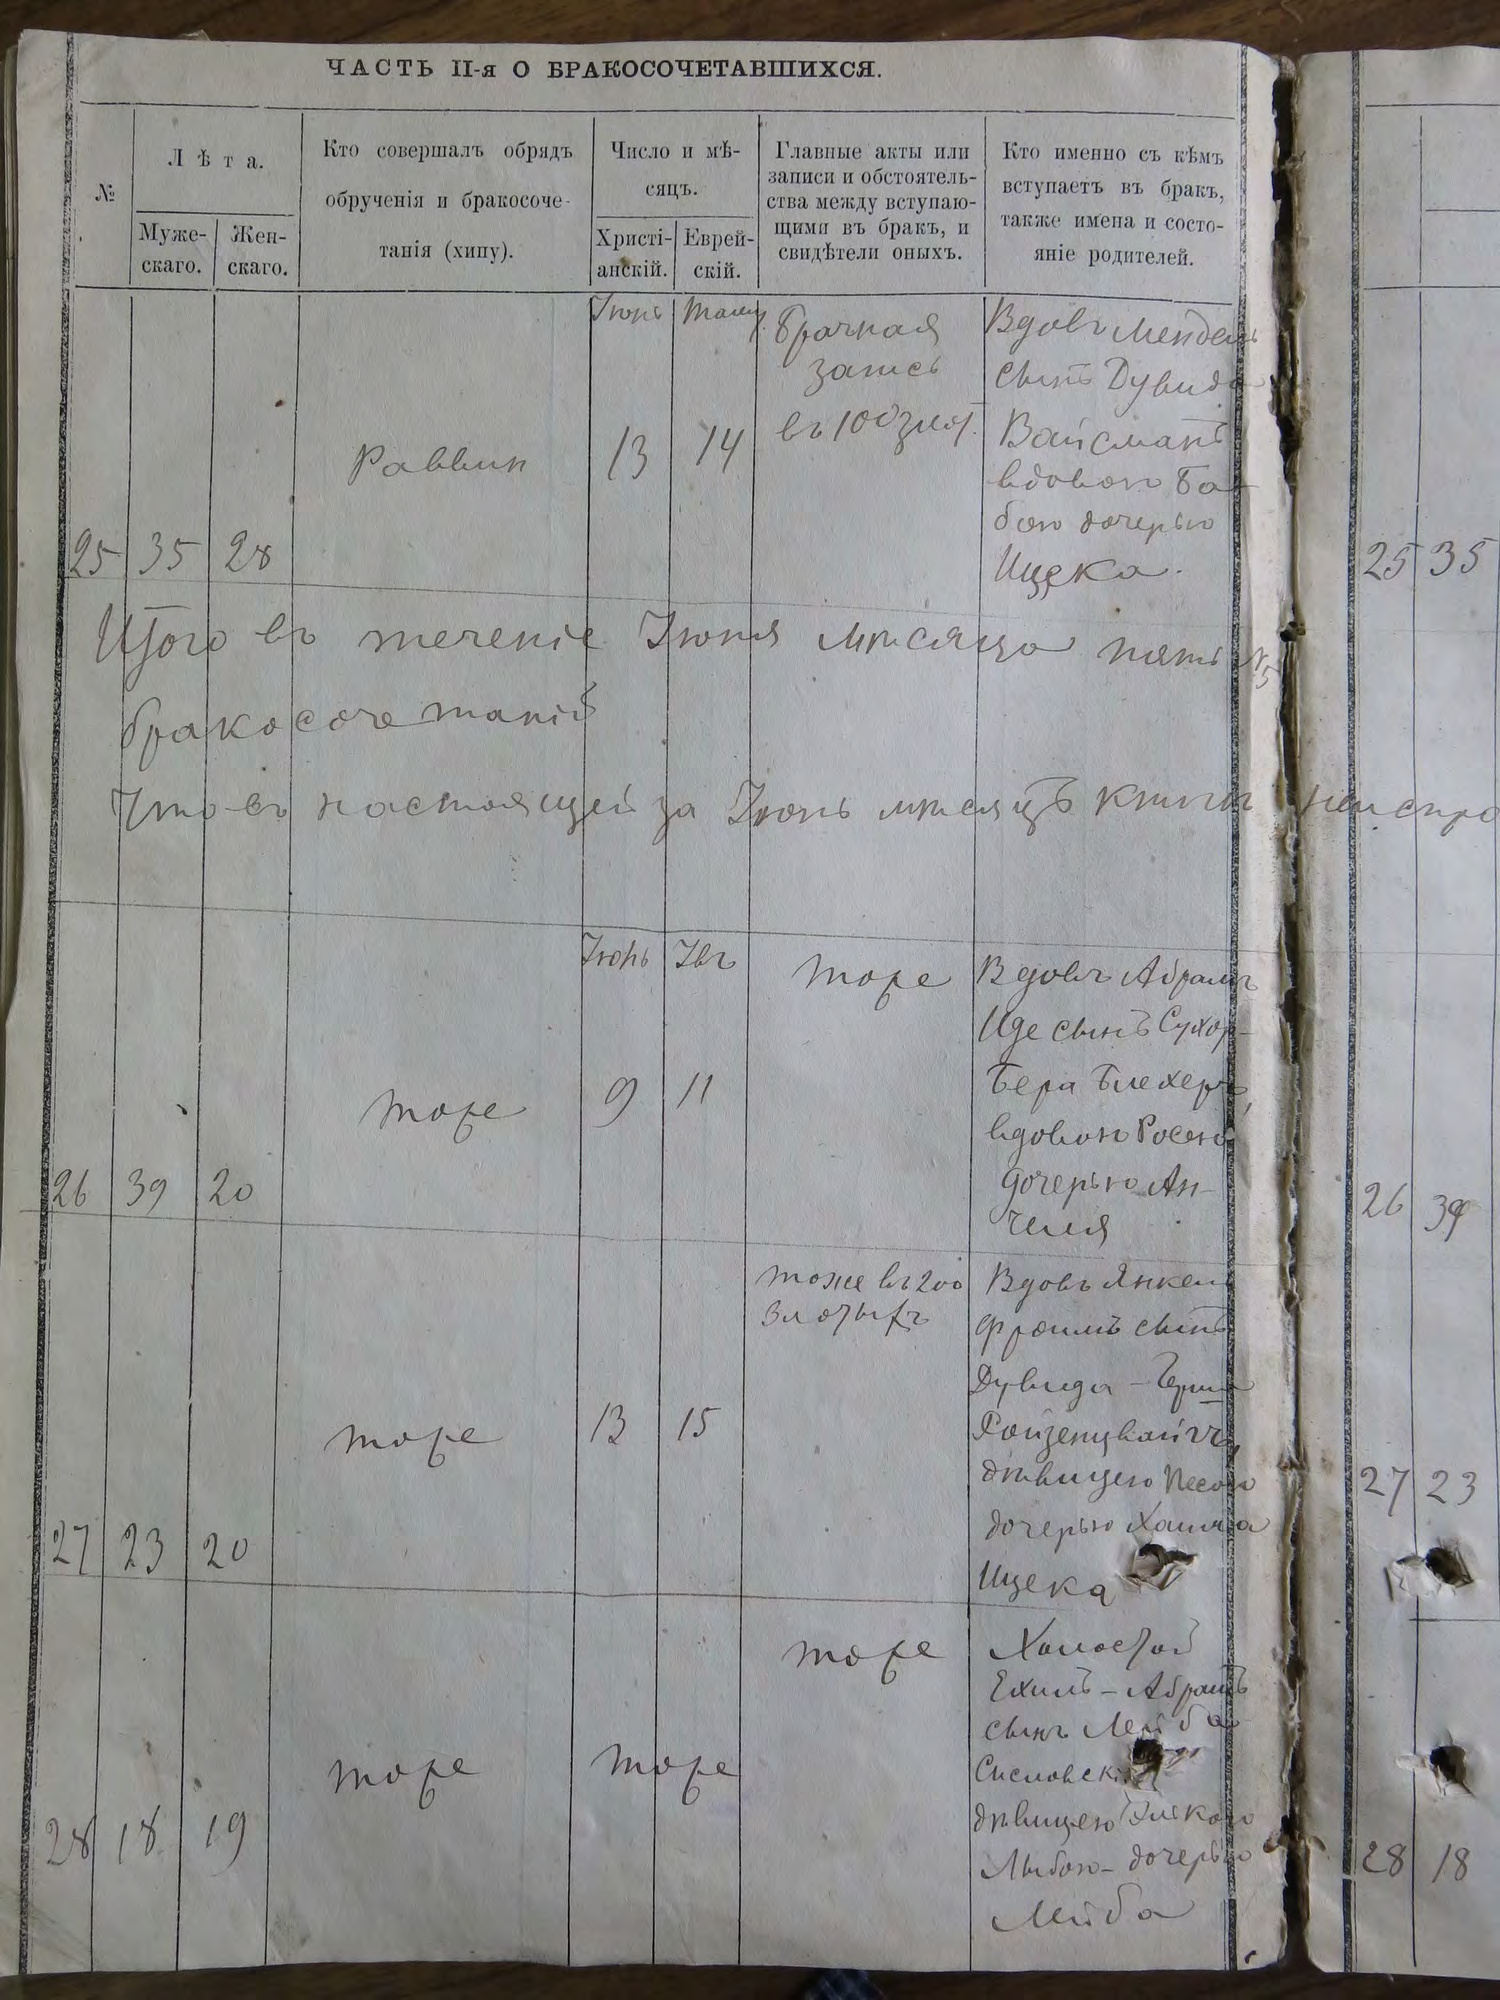 ЧАСТЬ II-я О БРАКОСОЧЕТАВШИХСЯ.
№
Лѣта.
Муже-
скаго.
Жен-
скаго.
Кто совершалъ обрядъ
обрученія и бракосоче-
танія (хипу).
Число и мѣ-
сяцъ.
Христі-
анскій.
Еврей-
скій.
Главные акты или
записи и обстоятель-
ства между вступаю-
щими въ бракъ, и
свидѣтели оныхъ.
Кто именно съ кѣмъ
вступаетъ въ бракъ,
также имена и состо-
яніе родителей.
25 35 28
Раввин
Іюнь
13
14
Брачная
запись
въ 100 злот.
Вдовъ Мендель
сынъ Дувида
Вайсманъ
вдовою Ба-
бою дочерью
Ицека.
Итого въ теченіе Іюня мѣсяца пять №5
бракосочетаній
Что въ настоящей за Іюнь мѣсяцъ книги неиспра
26 39 20
тоже
Іюнь
9
11
тоже
Вдовъ Абрамъ
Иде сынъ Сухор-
Бера Блехеръ,
вдовою Росею
дочерью Ан-
челя
27 23 20
тоже
13 15
тоже въ 200
злотыхъ
Вдовъ Янкель
Фроимъ сынъ
Дувида - Герша
Ройзенцвайгъ,
дѣвицею Песею
дочерью Хаима
Ицека
28 18 19
тоже
тоже
тоже
Холостой
Ехиль - Абрамъ
сынъ Лейба
Сисловскій
дѣвицею
дочерью
Лейба
25 35
26 39
27 23
28 18